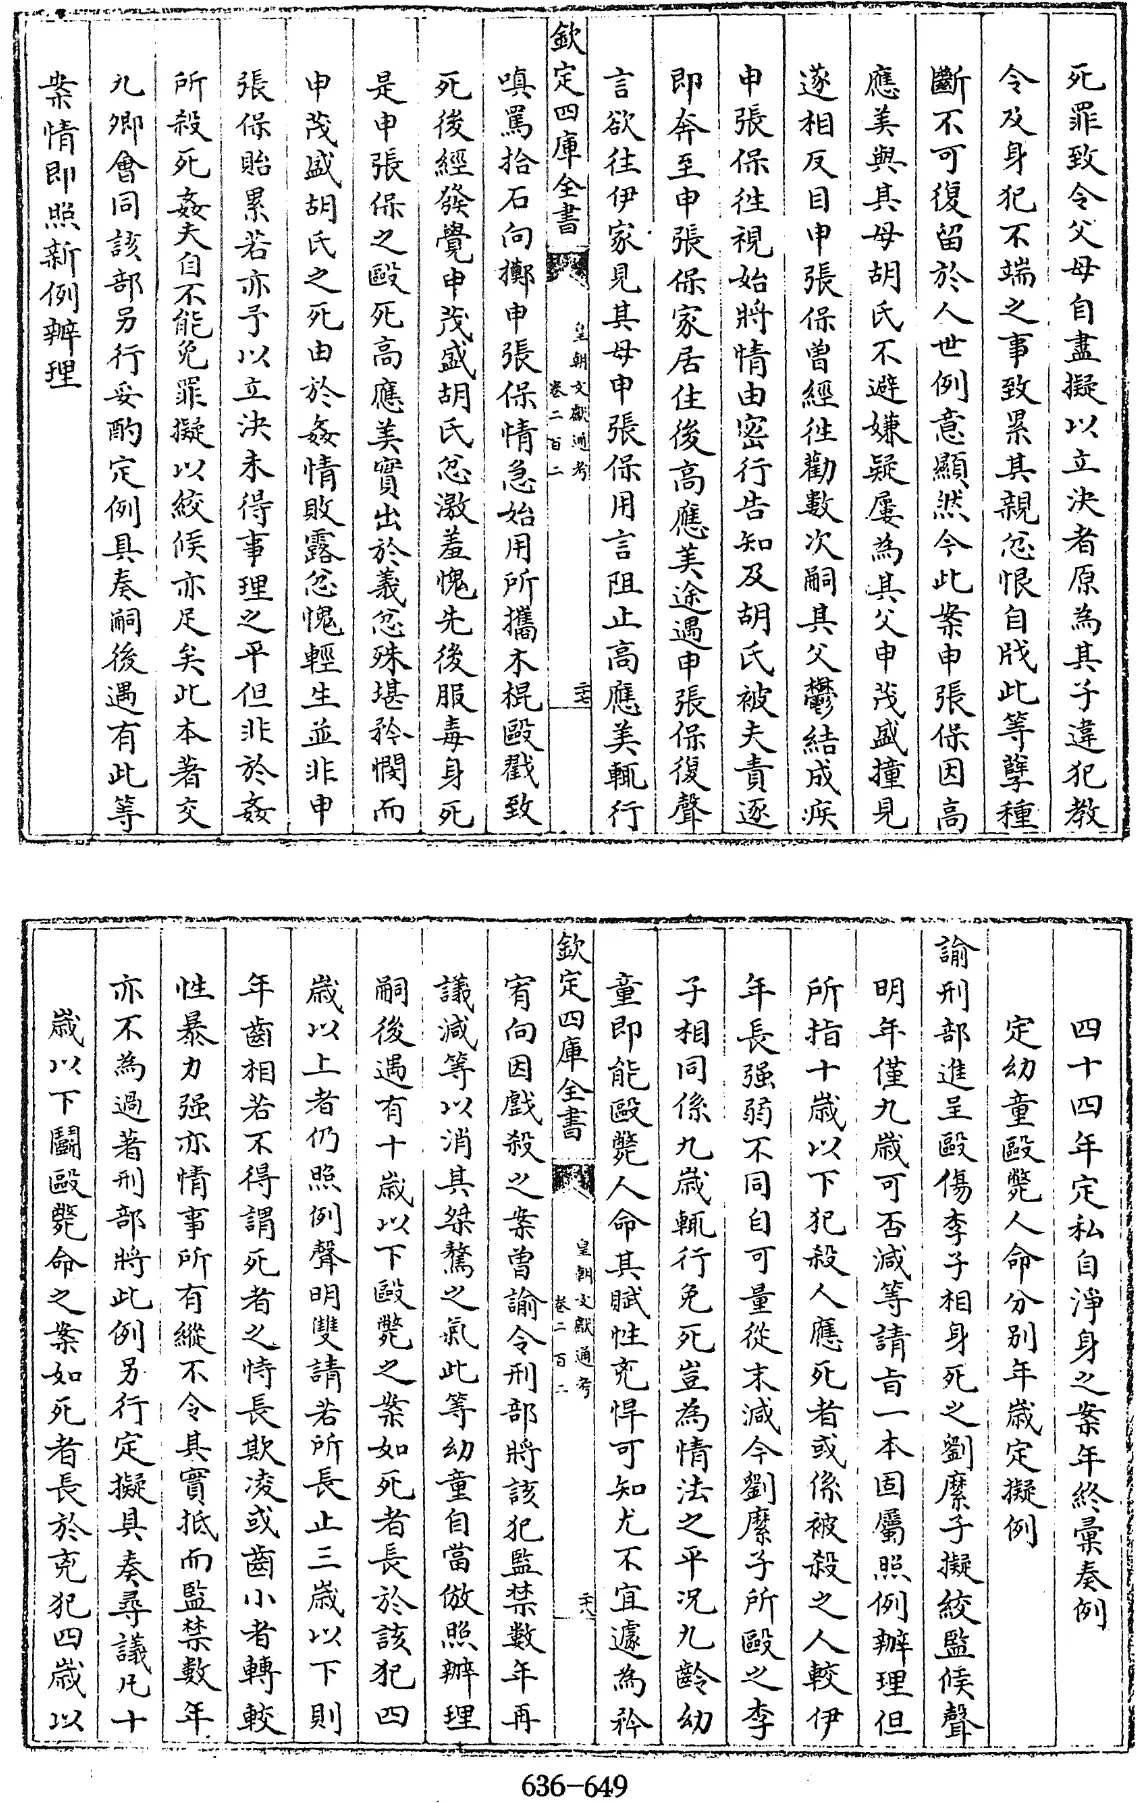 死罪致令父母自盡擬以立決者原為其子違犯教
令及身犯不端之事致累其親忿恨自戕此等孽種
斷不可復留於人世例意顯然今此案申張保因高
應美與其母胡氏不避嫌疑屢為其父申茂盛撞見
遂相反目申張保曾經徃勸數次嗣其父鬱結成疾
申張保徃視始將情由密行告知及胡氏被夫責逐
即奔至申張保家居住後高應美途遇申張保復聲
言欲往伊家見其母申張保用言阻止高應美輒行
欽定四庫全書
皇朝文獻通考
卷二百二
二十七
嗔罵拾石向擲申張保情急始用所攜木棍毆戳致
死後經發覺申茂盛胡氏忿激羞愧先後服毒身死
是申張保之毆死高應美實出於義忿殊堪矜憫而
申茂盛胡氏之死由於姦情敗露忿愧輕生並非申
張保貽累若亦予以立決未得事理之平但非於姦
所殺死姦夫自不能免罪擬以絞候亦足矣此本著交
九卿會同該部另行妥酌定例具奏嗣後遇有此等
案情即照新例辦理
四十四年定私自淨身之案年終彙奏例
定幼童毆斃人命分别年嵗定擬例
諭刑部進呈毆傷李子相身死之劉縻子擬絞監候聲
明年僅九嵗可否減等請旨一本固屬照例辦理但
所指十嵗以下犯殺人應死者或係被殺之人較伊
年長强弱不同自可量從末減今劉縻子所毆之李
子相同係九嵗輒行免死豈為情法之平况九齡幼
童即能毆斃人命其賦性兇悍可知尤不宜遽為矜
欽定四庫全書
皇朝文獻通考
卷二百二
二十八
宥向因戲殺之案曾諭令刑部將該犯監禁數年再
議減等以消其桀驁之氣此等幼童自當倣照辦理
嗣後遇有十嵗以下毆斃之案如死者長於該犯四
嵗以上者仍照例聲明雙請若所長止三嵗以下則
年齒相若不得謂死者之恃長欺凌或齒小者轉較
性暴力强亦情事所有縱不令其實抵而監禁數年
亦不為過著刑部將此例另行定擬具奏尋議凡十
嵗以下鬭毆斃命之案如死者長於兇犯四嵗以
636-649